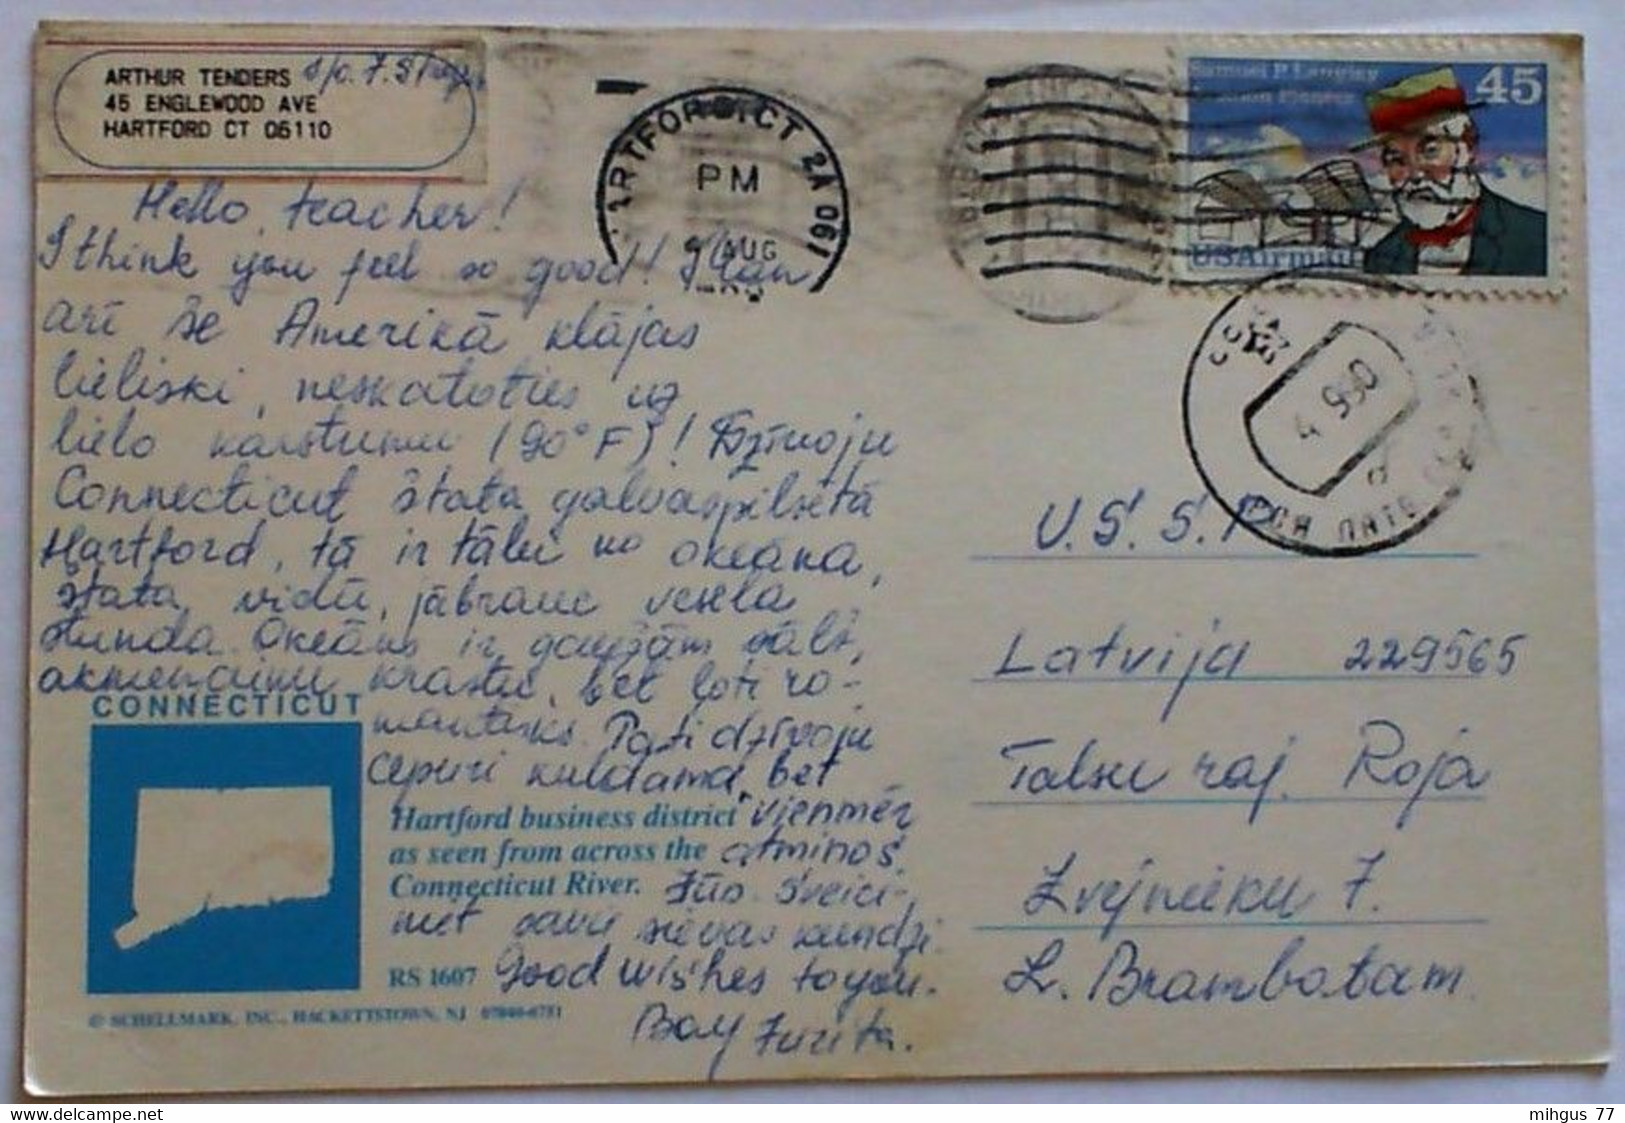 ARTHUR TENDERS
45 ENGLEWOOD AVE
HARTFORD CT 06110
PM
AUG
Samuel P. Langley
45
USAirmail
4 9 90
Hello, teacher!
I think you feel so good! Man
arī še Amerikā klājas
lieliski, neskatoties uz
lielo karstumu (90° F)! Dzīvoju
Connecticut štata galvaspilsētā
Hartford, tā ir tālu no okeāna,
štata vidū, jābrauc vesela
stunda. Okeāns ir gaužām sāļš,
akmeņainu krastu, bet ļoti ro-
mantisks. Pati dzīvoju
cepuri kuldama, bet
vienmēr
atminos
Jūs. Sveici-
niet savu sievas kundzi.
Good wishes to you.
Bay Zurita.
CONNECTICUT
Hartford business district
as seen from across the
Connecticut River.
RS 1607
© SCHELLMARK, INC., HACKETTSTOWN, NJ 07840-0751
U.S.S.R
Latvija 229565
Talsu raj. Roja
Zvejnieku 7.
L. Brambatam
mihgus 77